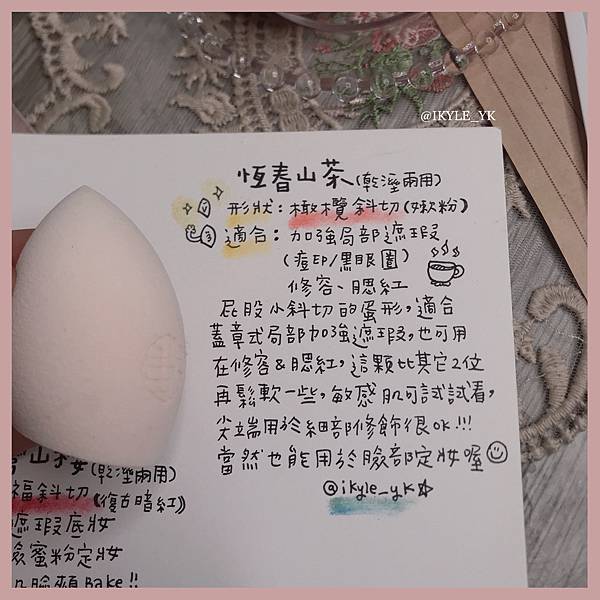 @IKYLE_YK
恆春山茶(乾溼兩用)
形狀:橄欖斜切(嫩粉)
適合:加強局部遮瑕
(痘印/黑眼圈)
修容、腮紅
屁股小斜切的蛋形,適合
蓋章式局部加強遮瑕,也可用
在修容&腮紅,這顆比其它2位
再鬆軟一些,敏感肌可試試看,
尖端用於細部修飾很OK!!!
當然也能用於臉部定妝喔
@ikyle_yk
山(乾溼兩用)
福斜切(復古暗紅)
遮瑕底妝
臉蜜粉定妝
臉頰Bake!!